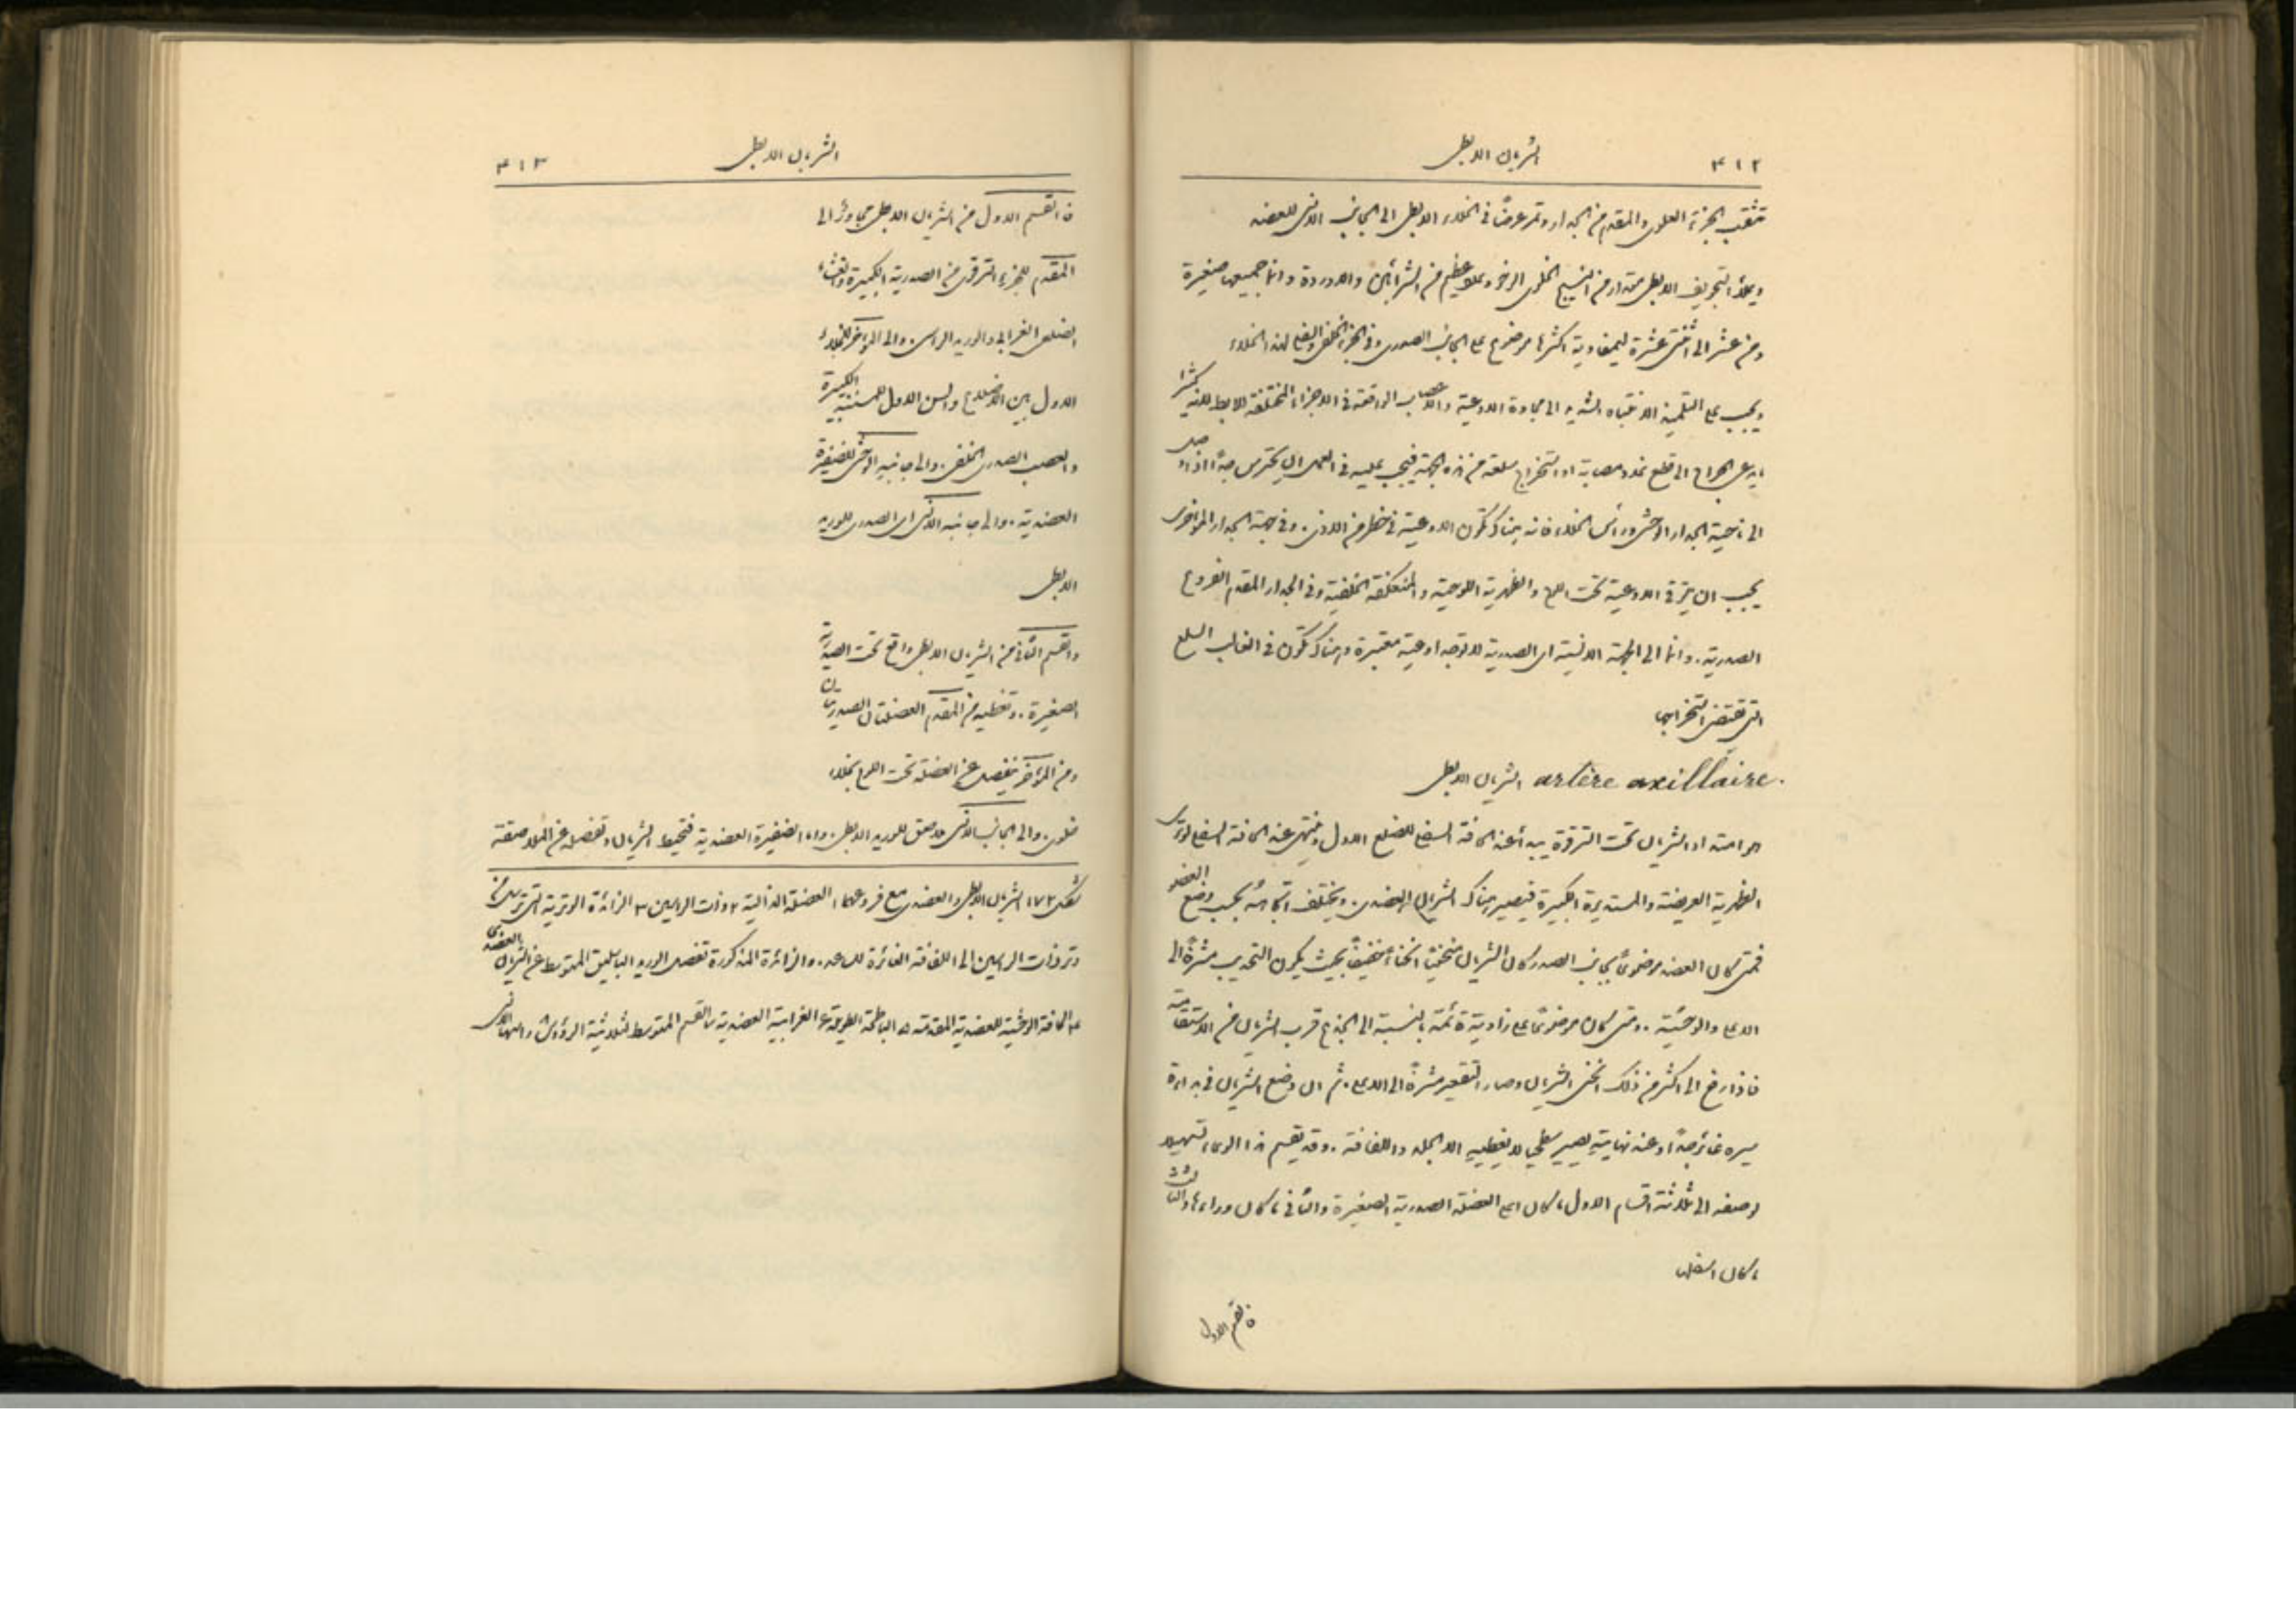 ٤١٢ الشريان الابطي
تثقب الجزء العلوي والمقدم من الجدار وتمر عرضاً في الخلاء الابطي الى الجانب الانسي للعضد
ويملأ التجويف الابطي مقدار من النسيج الخلوي الرخو وعظيم من الشرائين والاوردة وانما جميعها صغيرة
ومن عشر الى اثنتي عشرة ليمفاوية اكثرها موضوع على الجانب الصدري وفي الجزء الخلفي والسفلي لهذا الخلاء
ويجب على التلميذ الانتباه الشديد الى مجاورة الاوعية والاعصاب الواقعة في الاجزاء المختلفة للابط لانه كثيرا
ما يدعى الجراح الى قطع غدد مصابة او استخراج سلعة من هذه الجهة فيجب عليه في العمل ان يحترس جداً اذا وصل
الى ناحية الجدار الوحشي وراس الخلاء فانه هناك تكون الاوعية في خطر من الاذى. وفي جهة الجدار المؤخري
يجب ان يتوقى الاوعية تحت اللوح والظهرية اللوحية والمنعكفة الخلفية وفي الجدار المقدم الفروع
الصدرية. وانما الى الجهة الانسية اي الصدرية لا توجد اوعية معتبرة وهناك تكون في الغالب السلع
التي تقتضي استخراجها
الشريان الابطي artère axillaire.
هو امتداد الشريان تحت الترقوة يبدأ عند الحافة السفلى للضلع الاول وينتهي عند الحافة السفلى لوتري
الظهرية العريضة والمستديرة الكبيرة فيصير هناك الشريان العضدي. ويختلف اتجاهه بحسب وضع العضو
فمتى كان العضد موضوعاً بجانب الصدر كان الشريان منحنياً انحناءً خفيفاً بحيث يكون التحديب متجهاً الى
الاعلى والوحشية. ومتى كان موضوعاً على زاوية قائمة بالنسبة الى الجذع قرب الشريان من الاستقامة
فاذا رفع الى اكثر من ذلك انحنى الشريان وصار التقعير متجهاً الى الاعلى. ثم ان وضع الشريان في بداءة
سيره غائر جداً وعند نهايته يصير سطحياً لا يغطيه الا الجلد واللفافة. وقد يقسم هذا الوعاء تسهيلا
لوصفه الى ثلاثة اقسام الاول ما كان اعلى العضلة الصدرية الصغيرة والثاني ما كان وراءها والثالث
ما كان اسفلها
فالقسم الاول
الشريان الابطي ٤١٣
فالقسم الاول من الشريان الابطي مجاور الى
المقدم للجزء الترقوي من الصدرية الكبيرة والغشاء
الضلعي الغرابي والوريد الراسي. والى المؤخر للخلاء
الاول بين الاضلاع والسن الاول للمسننة الكبيرة
والعصب الصدري الخلفي. والى جانبه الوحشي للضفيرة
العضدية. والى جانبه الانسي اي الصدري للوريد
الابطي
والقسم الثاني من الشريان الابطي واقع تحت الصدرية
الصغيرة. وتغطيه من المقدم العضلتان الصدريتان
ومن المؤخر ينفصل عن العضلة تحت اللوح بخلاء
خلوي. والى الجانب الانسي ملاصق للوريد الابطي. واما الضفيرة العضدية فتحيط الشريان وتفصله عن الملاصقة
شكل ١٧٢ الشريان الابطي والعضدي مع فروعهما ١ العضلة الدالية ٢ ذات الراسين ٣ الزائدة الوترية التي من
وتر ذات الراسين الى اللفافة الغائرة للساعد. والزائدة المذكورة تفصل الوريد الباسليق المتوسط عن الشريان العضدي
٤ الحافة الوحشية للعضدية المقدمة ٥ الباطحة الطويلة ٦ الغرابية العضدية ٧ القسم المتوسط لثلاثية الرؤوس ٨ راسها الانسي